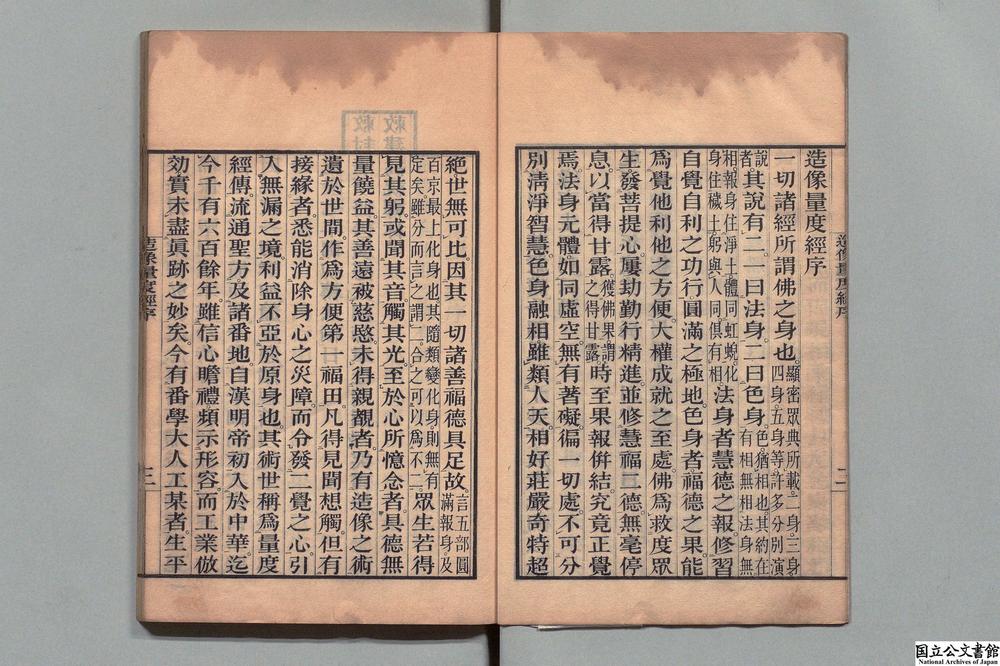 造像量度經序
一切諸經所謂佛之身也。顯密眾典所載。一身。三身。四身。五身等。許多分別演
說者其說有二。一曰法身。二曰色身。色猶相也。其約在有相無相。法身無
相。報身住淨土。體同虹蜺。化身住穢土。躬與人同。俱有相法身者慧德之報。修習
自覺自利之功行圓滿之極地。色身者福德之果。能
爲覺他利他之方便。大權成就之至處。佛爲救度眾
生。發菩提心。屢劫勤行精進。並修慧福二德無毫停
息。以當得甘露獲佛果。謂之得甘露時至果報併結。究竟正覺
焉。法身元體。如同虛空。無有著礙。徧一切處。不可分
別清淨智慧。色身融相。雖類人天。相好莊嚴。奇特超
二
造像量度經序
絕世無可比。因其一切諸善福德具足故。言五部圓滿報身。及
百京最上化身也。其隨類變化身。則無有定矣。雖分而言之謂二。合之可以爲不二。眾生若得
見其躬。或聞其音觸其光。至於心所憶念者。具德無
量饒益。其善遠被慈愍未得親覩者。乃有造像之術
遺於世間。作爲方便第一福田。凡得見聞想觸。但有
接緣者。悉能消除身心之災障。而令發二覺之心。引
入無漏之境。利益不亞於原身也。其術世稱爲量度
經傳。流通聖方及諸番地。自漢明帝初入於中華。迄
今千有六百餘年。雖信心瞻禮頻示形容。而工業倣
効實未盡眞跡之妙矣。今有番學大人工某者。生平
造像量度經序
三
国立公文書館
National Archives of Japan